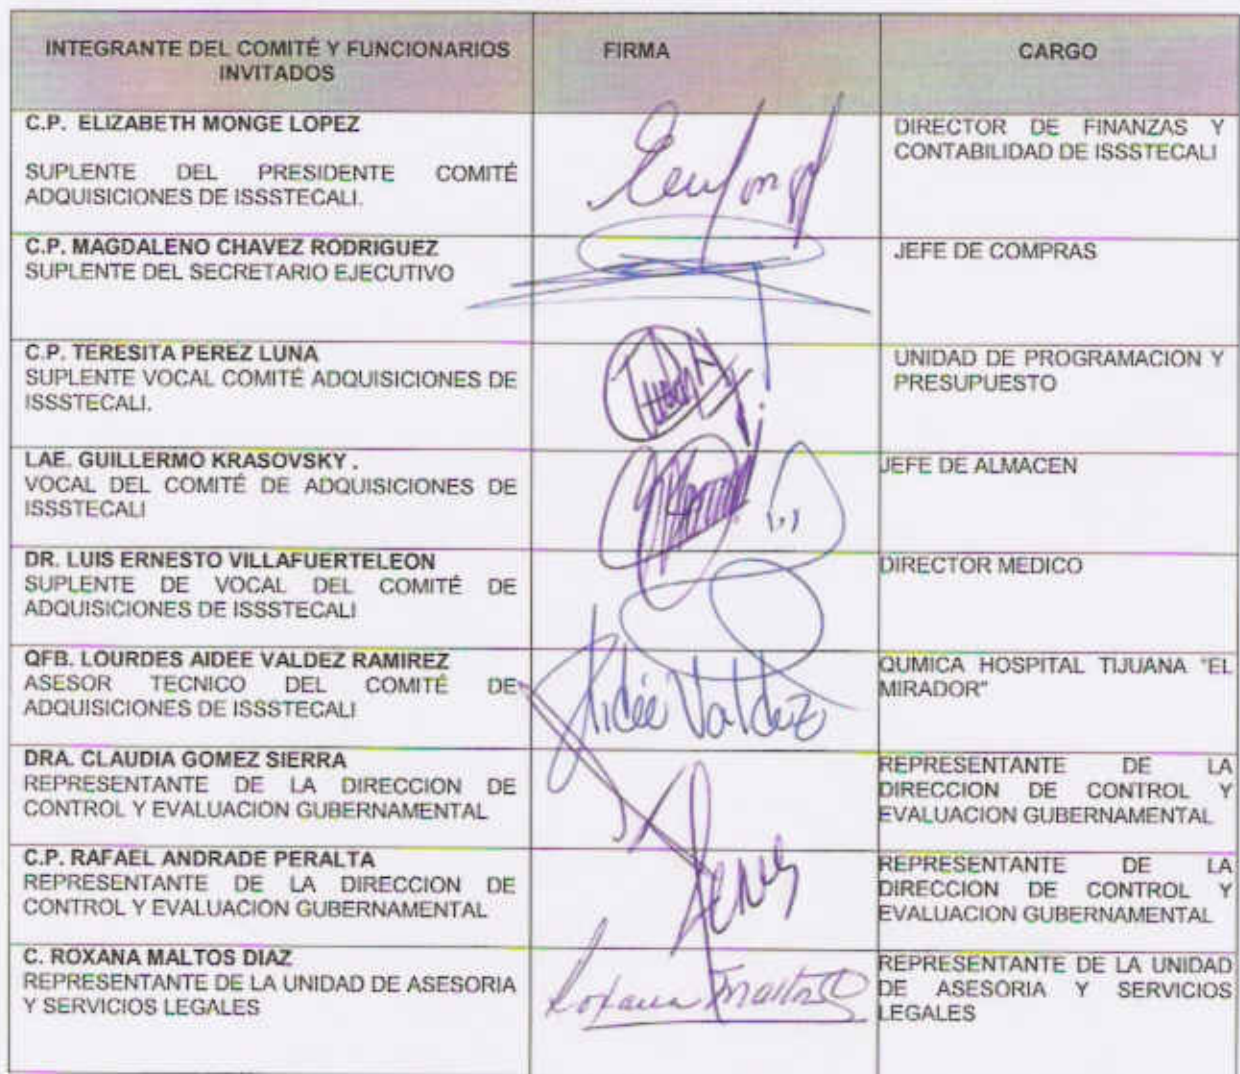 INTEGRANTE DEL COMITÉ Y FUNCIONARIOS
INVITADOS
FIRMA
CARGO
C.P. ELIZABETH MONGE LOPEZ
SUPLENTE DEL PRESIDENTE COMITÉ
ADQUISICIONES DE ISSSTECALI.
DIRECTOR DE FINANZAS Y
CONTABILIDAD DE ISSSTECALI
C.P. MAGDALENO CHAVEZ RODRIGUEZ
SUPLENTE DEL SECRETARIO EJECUTIVO
JEFE DE COMPRAS
C.P. TERESITA PEREZ LUNA
SUPLENTE VOCAL COMITÉ ADQUISICIONES DE
ISSSTECALI.
UNIDAD DE PROGRAMACION Y
PRESUPUESTO
LAE. GUILLERMO KRASOVSKY .
VOCAL DEL COMITÉ DE ADQUISICIONES DE
ISSSTECALI
JEFE DE ALMACEN
DR. LUIS ERNESTO VILLAFUERTELEON
SUPLENTE DE VOCAL DEL COMITÉ DE
ADQUISICIONES DE ISSSTECALI
DIRECTOR MEDICO
QFB. LOURDES AIDEE VALDEZ RAMIREZ
ASESOR TECNICO DEL COMITÉ DE
ADQUISICIONES DE ISSSTECALI
Aidée Valdez
QUMICA HOSPITAL TIJUANA "EL
MIRADOR"
DRA. CLAUDIA GOMEZ SIERRA
REPRESENTANTE DE LA DIRECCION DE
CONTROL Y EVALUACION GUBERNAMENTAL
REPRESENTANTE DE LA
DIRECCION DE CONTROL Y
EVALUACION GUBERNAMENTAL
C.P. RAFAEL ANDRADE PERALTA
REPRESENTANTE DE LA DIRECCION DE
CONTROL Y EVALUACION GUBERNAMENTAL
REPRESENTANTE DE LA
DIRECCION DE CONTROL Y
EVALUACION GUBERNAMENTAL
C. ROXANA MALTOS DIAZ
REPRESENTANTE DE LA UNIDAD DE ASESORIA
Y SERVICIOS LEGALES
Roxana Maltos D
REPRESENTANTE DE LA UNIDAD
DE ASESORIA Y SERVICIOS
LEGALES